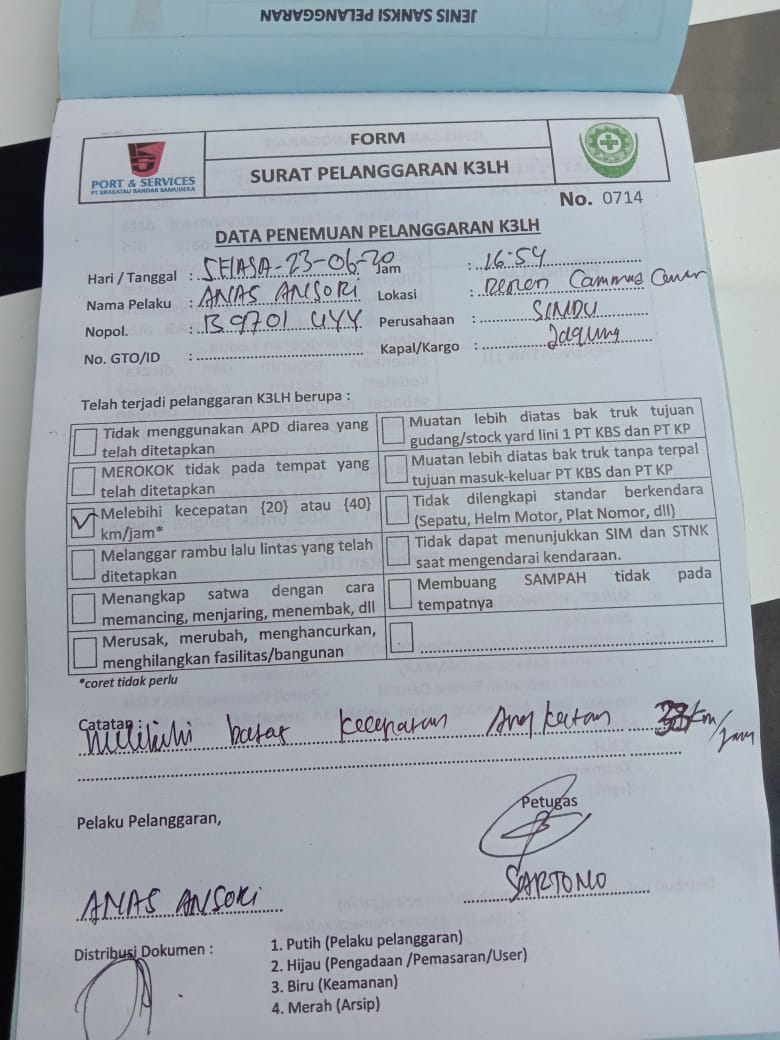 JENIS SANKSI PELANGGARAN
PORT & SERVICES
PT KRAKATAU BANDAR SAMUDERA
FORM
SURAT PELANGGARAN K3LH
No. 0714
DATA PENEMUAN PELANGGARAN K3LH
Hari / Tanggal : SElASA-23-06-20
Jam : 16.54
Nama Pelaku : ANAS ANSORI
Lokasi :
Nopol. : B 9701 UYY
Perusahaan : SINDU
No. GTO/ID :
Kapal/Kargo : Jagung
Telah terjadi pelanggaran K3LH berupa :
Tidak menggunakan APD diarea yang
telah ditetapkan
Muatan lebih diatas bak truk tujuan
gudang/stock yard lini 1 PT KBS dan PT KP
MEROKOK tidak pada tempat yang
telah ditetapkan
Muatan lebih diatas bak truk tanpa terpal
tujuan masuk-keluar PT KBS dan PT KP
Melebihi kecepatan {20} atau {40}
km/jam*
Tidak dilengkapi standar berkendara
(Sepatu, Helm Motor, Plat Nomor, dll)
Melanggar rambu lalu lintas yang telah
ditetapkan
Tidak dapat menunjukkan SIM dan STNK
saat mengendarai kendaraan.
Menangkap satwa dengan cara
memancing, menjaring, menembak, dll
Membuang SAMPAH tidak pada
tempatnya
Merusak, merubah, menghancurkan,
menghilangkan fasilitas/bangunan
*coret tidak perlu
Catatan :
batas kecepatan Angkutan km/jam
Pelaku Pelanggaran,
Petugas
ANAS ANSORI
SARTONO
Distribusi Dokumen :
1. Putih (Pelaku pelanggaran)
2. Hijau (Pengadaan /Pemasaran/User)
3. Biru (Keamanan)
4. Merah (Arsip)